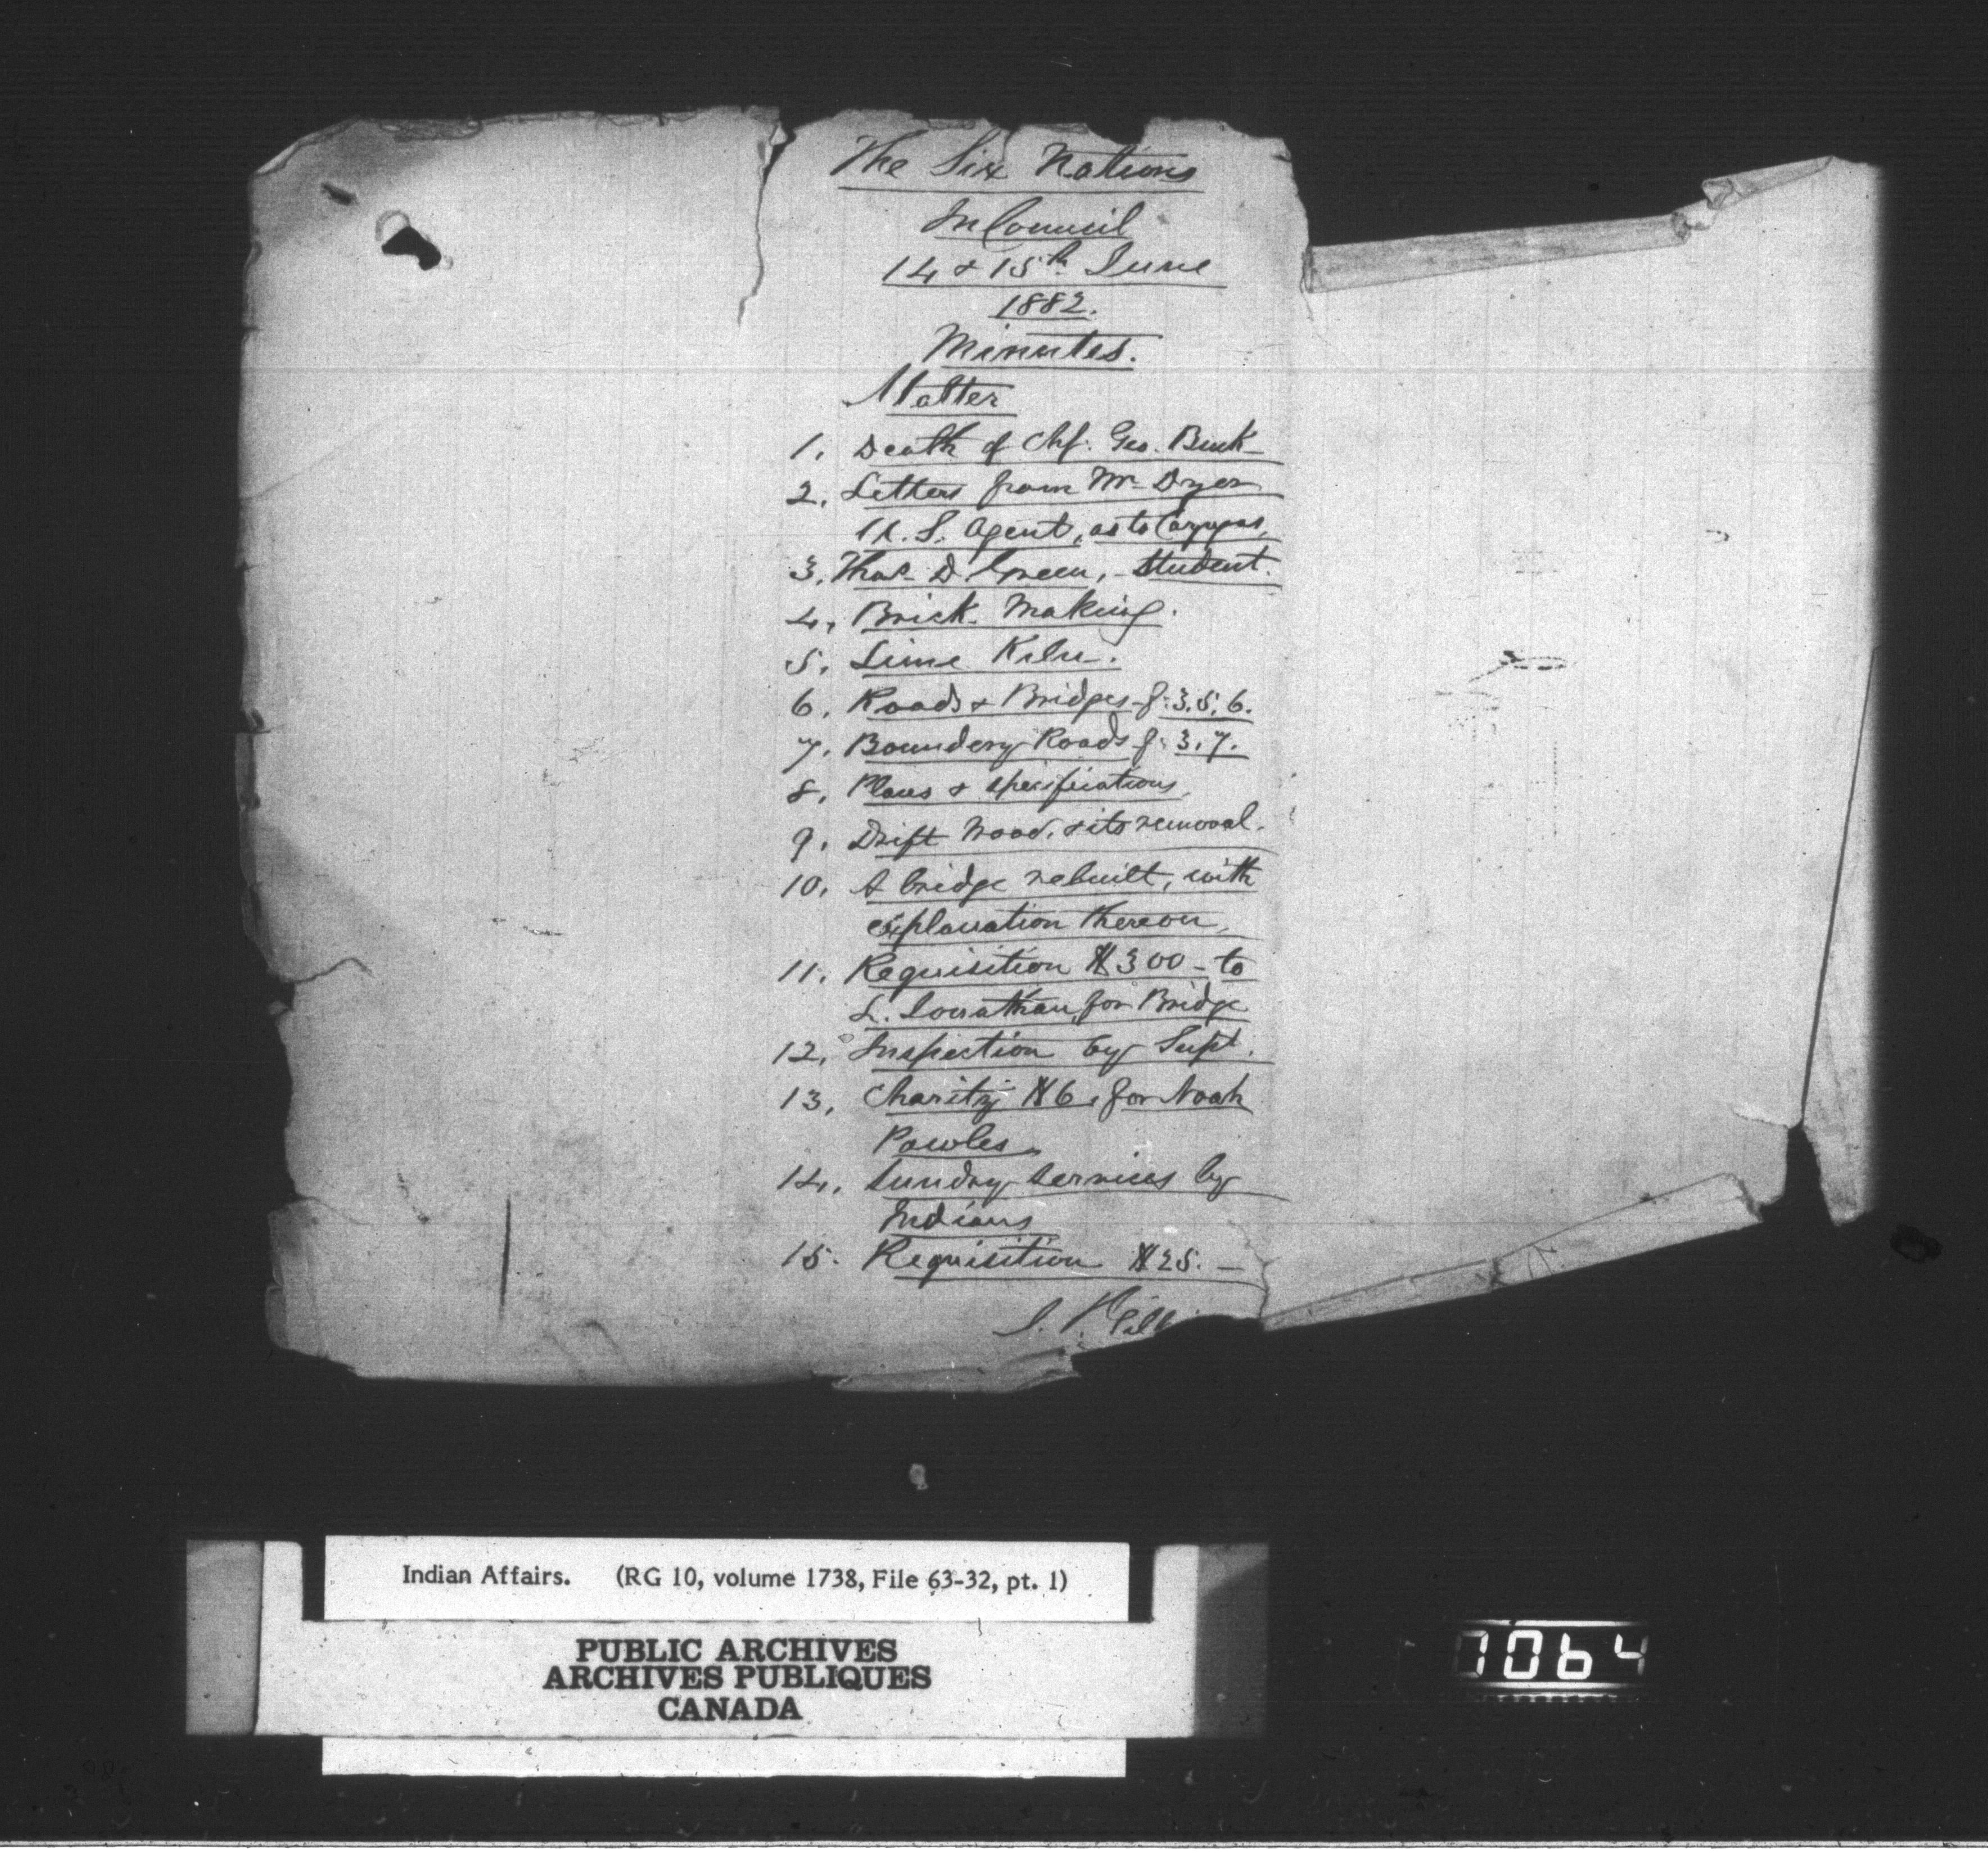 The Six Nations
In Council
14 & 15th June
1882.
Minutes.
Matter
1. Death of Chf. Geo. Buck
2. Letters from Mr. Dyer
U. S. Agent, as to Cayugas,
3. Thos. D Green, - Student.
4. Brick Making.
5. Lime Kiln.
6. Roads & Bridges f: 3, 5, 6.
7. Boundery Roads f: 3, 7.
8. Plans & Specifications,
9. Drift Wood, & its removal.
10. A bridge rebuilt, with
explanation thereon,
11. Requisition $300 - to
L. Jonathan, for Bridge
12. Inspection by Supt.
13. Charity $6. for Noah
Powles
14. Sunday Services by
Indians
15. Requisition $25. —
J.
Indian Affairs. (RG 10, volume 1738, File 63-32, pt. 1)
PUBLIC ARCHIVES
ARCHIVES PUBLIQUES
CANADA
064